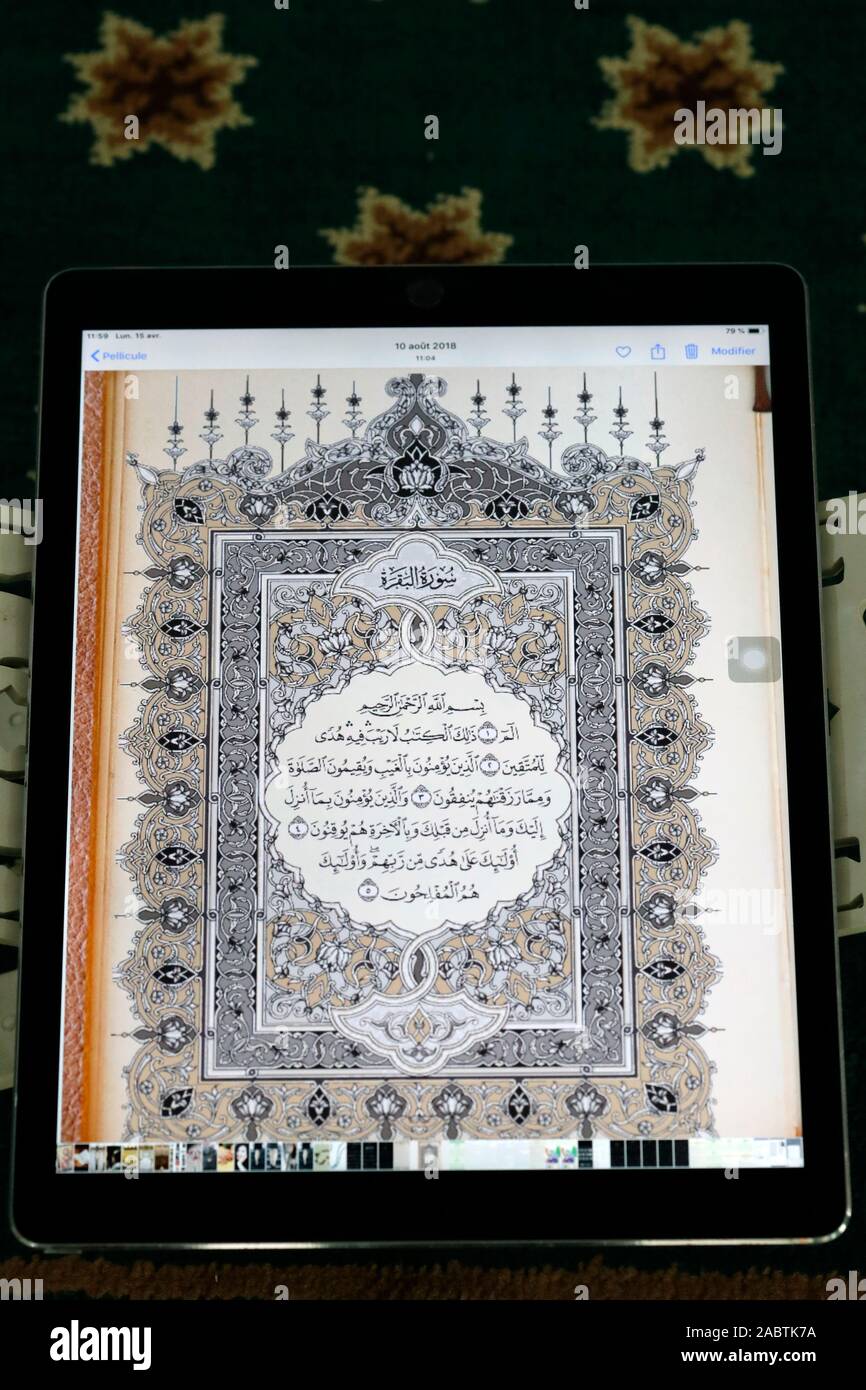 11:59 Lun. 15 avr.
79 %
Pellicule
10 août 2018
11:04
Modifier
سُورَةُ البَقَرَةِ
بِسْمِ ٱللَّهِ ٱلرَّحْمَٰنِ ٱلرَّحِيمِ
الٓمٓ ١ ذَٰلِكَ ٱلْكِتَٰبُ لَا رَيْبَ ۛ فِيهِ ۛ هُدًى
لِّلْمُتَّقِينَ ٢ ٱلَّذِينَ يُؤْمِنُونَ بِٱلْغَيْبِ وَيُقِيمُونَ ٱلصَّلَوٰةَ
وَمِمَّا رَزَقْنَٰهُمْ يُنفِقُونَ ٣ وَٱلَّذِينَ يُؤْمِنُونَ بِمَآ أُنزِلَ
إِلَيْكَ وَمَآ أُنزِلَ مِن قَبْلِكَ وَبِٱلْءَاخِرَةِ هُمْ يُوقِنُونَ ٤
أُو۟لَٰٓئِكَ عَلَىٰ هُدًى مِّن رَّبِّهِمْ ۖ وَأُو۟لَٰٓئِكَ
هُمُ ٱلْمُفْلِحُونَ ٥
alamy
alamy
Image ID: 2ABTK7A
www.alamy.com